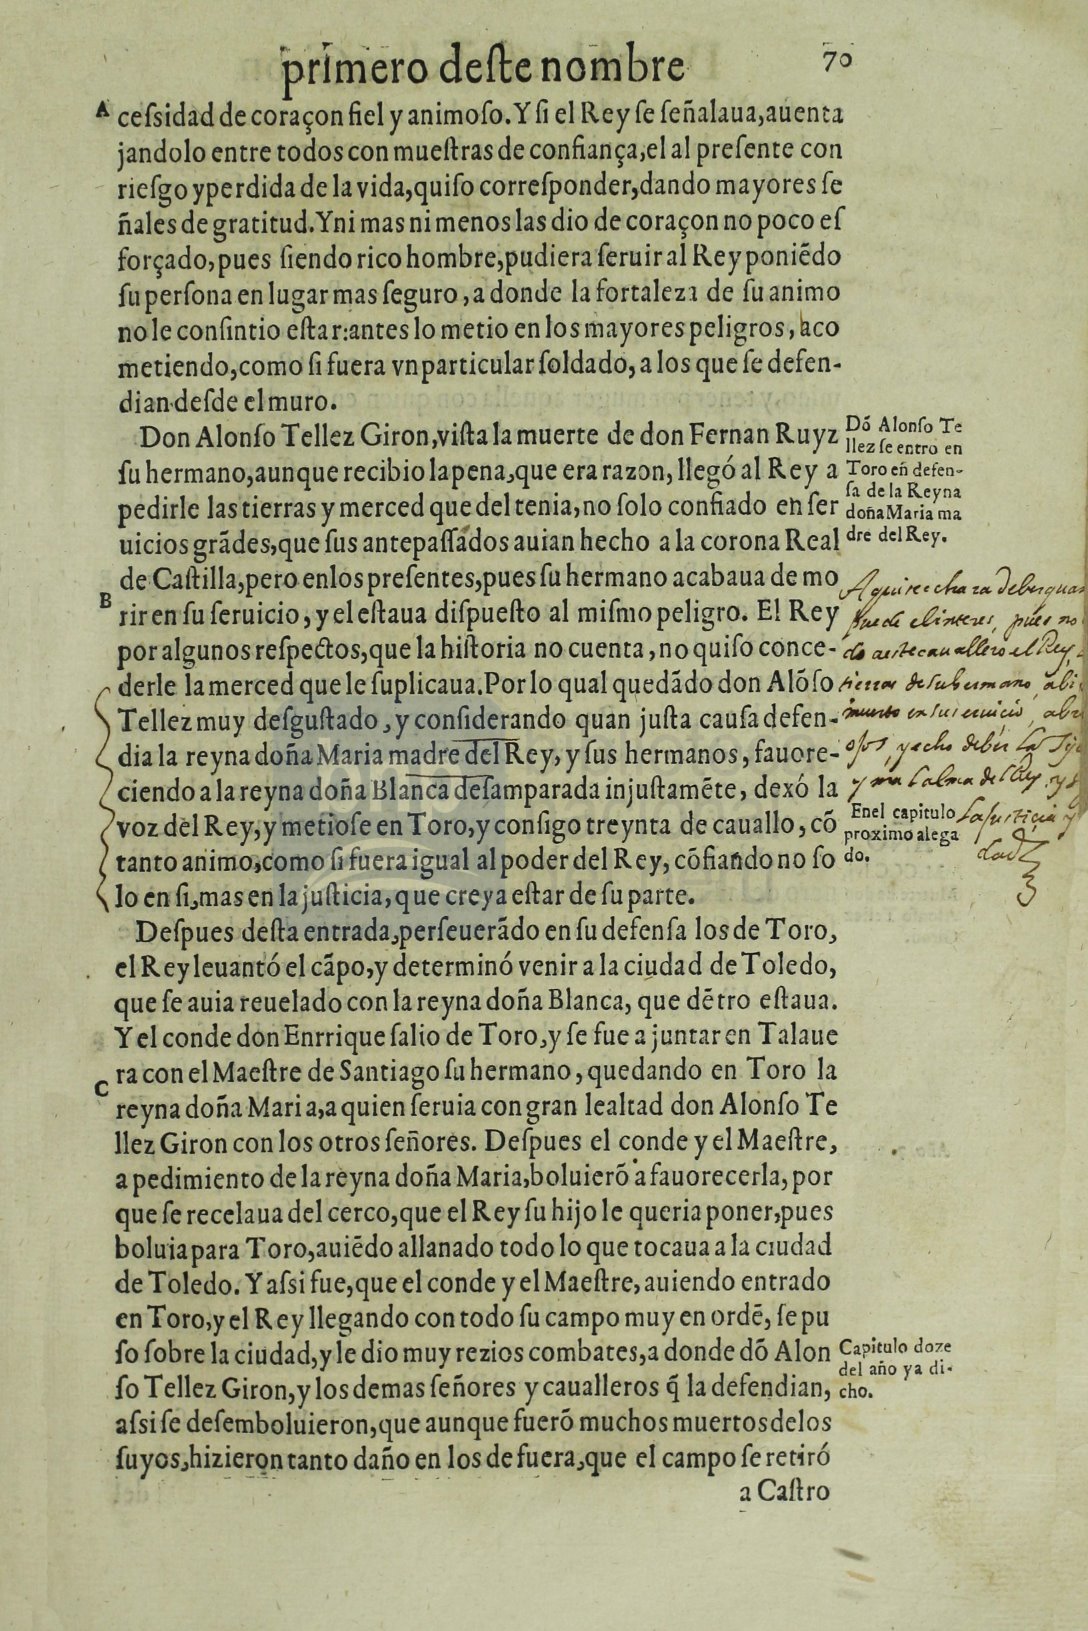 primero deſte nombre 70
A
ceſsidad de coraçon fiel y animoſo. Y ſi el Rey ſe ſeñalaua, auenta
jandolo entre todos con mueſtras de confiança, el al preſente con
rieſgo y perdida de la vida, quiſo correſponder, dando mayores ſe
ñales de gratitud. Y ni mas ni menos las dio de coraçon no poco eſ
forçado, pues ſiendo rico hombre, pudiera ſeruir al Rey poniẽdo
ſu perſona en lugar mas ſeguro, a donde la fortaleza de ſu animo
no le conſintio eſtar: antes lo metio en los mayores peligros, aco
metiendo, como ſi fuera vn particular ſoldado, a los que ſe defen-
dian deſde el muro.
Don Alonſo Tellez Giron, viſta la muerte de don Fernan Ruyz
ſu hermano, aunque recibio la pena, que era razon, llegó al Rey a
pedirle las tierras y merced que del tenia, no ſolo confiado en ſer
uicios grãdes, que ſus antepaſſados auian hecho a la corona Real
de Caſtilla, pero en los preſentes, pues ſu hermano acabaua de mo
B
rir en ſu ſeruicio, y el eſtaua diſpueſto al miſmo peligro. El Rey
por algunos reſpectos, que la hiſtoria no cuenta, no quiſo conce-
derle la merced que le ſuplicaua. Por lo qual quedãdo don Alõſo
Tellez muy deſguſtado, y conſiderando quan juſta cauſa defen-
dia la reyna doña Maria madre del Rey, y ſus hermanos, fauore-
ciendo a la reyna doña Blanca deſamparada injuſtamẽte, dexó la
voz del Rey, y metioſe en Toro, y conſigo treynta de cauallo, cõ
tanto animo, como ſi fuera igual al poder del Rey, cõfiando no ſo
lo en ſi, mas en la juſticia, que creya eſtar de ſu parte.
Deſpues deſta entrada, perſeuerãdo en ſu defenſa los de Toro,
el Rey leuantó el cãpo, y determinó venir a la ciudad de Toledo,
que ſe auia reuelado con la reyna doña Blanca, que dẽtro eſtaua.
Y el conde don Enrrique ſalio de Toro, y ſe fue a juntar en Talaue
C
ra con el Maeſtre de Santiago ſu hermano, quedando en Toro la
reyna doña Maria, a quien ſeruia con gran lealtad don Alonſo Te
llez Giron con los otros ſeñores. Deſpues el conde y el Maeſtre,
a pedimiento de la reyna doña Maria, boluierõ a fauorecerla, por
que ſe recelaua del cerco, que el Rey ſu hijo le queria poner, pues
boluia para Toro, auiẽdo allanado todo lo que tocaua a la ciudad
de Toledo. Y aſsi fue, que el conde y el Maeſtre, auiendo entrado
en Toro, y el Rey llegando con todo ſu campo muy en ordẽ, ſe pu
ſo ſobre la ciudad, y le dio muy rezios combates, a donde dõ Alon
ſo Tellez Giron, y los demas ſeñores y caualleros q̃ la defendian,
aſsi ſe deſemboluieron, que aunque fuerõ muchos muertos de los
ſuyos, hizieron tanto daño en los de fuera, que el campo ſe retiró
a Caſtro
Dõ Alonſo Te
llez ſe entro en
Toro eñ defen-
ſa de la Reyna
doña Maria ma
dre del Rey.
puede el interes, pues no
cauallero el Rey
tierras de su hermano
muerto en su seruicio
y echo
y del Rey, y
la justicia y
En el capitulo
proximo alega
do.
Capitulo doze
del año ya di-
cho.